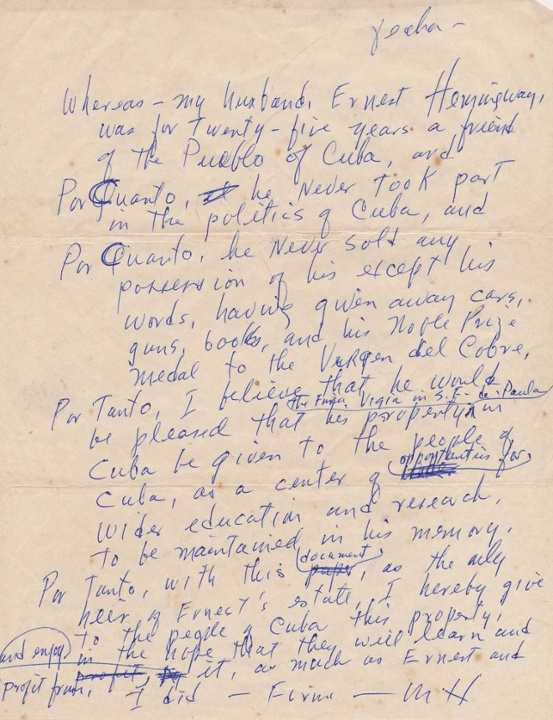 fecha —
Whereas — my husband, Ernest Hemingway,
was for twenty-five years a friend
of the Pueblo of Cuba, and
Por Cuanto, he never took part
in the politics of Cuba, and
Por Cuanto, he never sold any
possession of his except his
words, having given away cars,
guns, books, and his Noble Prize
medal to the Virgen del Cobre,
Por Tanto, I believe that he would
the Finca Vigia in S.F. de Paula
be pleased that his property in
Cuba be given to the people of
opportunties for
Cuba, as a center of
wider education and research,
to be maintained in his memory.
document
Por Tanto, with this paper, as the only
heir of Ernest's estate, I hereby give
to the people of Cuba this property,
and enjoy in the hope that they will learn and
profit from, profit, by it, as much as Ernest and
I did — Firma — M H